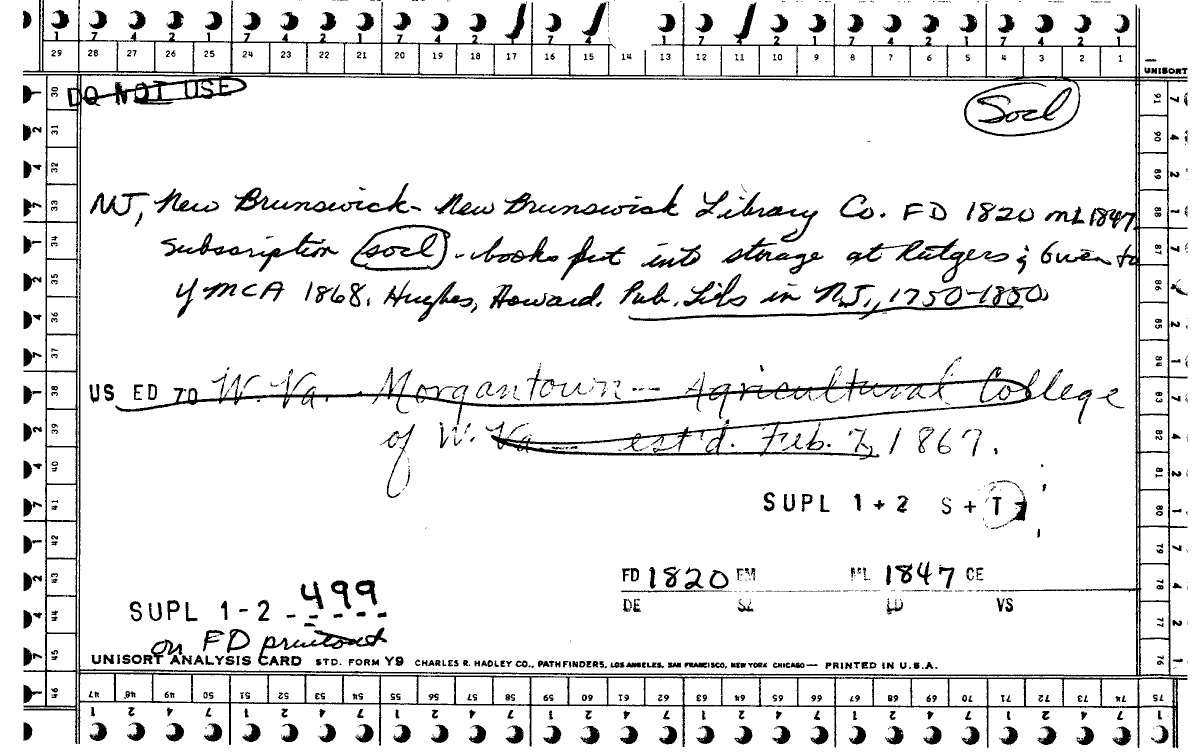 7 4 2 1 7 4 2 1 7 4 2 1 7 4 2 1 7 4 2 1 7 4 2 1
29 28 27 26 25 24 23 22 21 20 19 18 17 16 15 14 13 12 11 10 9 8 7 6 5 4 3 2 1
UNISORT
DO NOT USE
Socl
NJ, New Brunswick- New Brunswick Library Co. FD 1820 ML 1847
subscription (socl) - books put into storage at Rutgers; Given to
YMCA 1868. Hughes, Howard. Pub. Libs in N.J., 1750-1850
US ED TO W. Va. - Morgantown -- Agricultural College
of W. Va. — est'd. Feb. 7, 1867.
SUPL 1+2 S + T
FD 1820 EM ML 1847 CE
DE SZ LD VS
SUPL 1-2 - 499
on FD printout
UNISORT ANALYSIS CARD STD. FORM Y9 CHARLES R. HADLEY CO., PATHFINDERS, LOS ANGELES, SAN FRANCISCO, NEW YORK CHICAGO — PRINTED IN U.S.A.
30 31 32 33 34 35 36 37 38 39 40 41 42 43 44 45 46
91 90 89 88 87 86 85 84 83 82 81 80 79 78 77 76 75
47 48 49 50 51 52 53 54 55 56 57 58 59 60 61 62 63 64 65 66 67 68 69 70 71 72 73 74
1 2 4 7 1 2 4 7 1 2 4 7 1 2 4 7 1 2 4 7 1 2 4 7 1 2 4 7